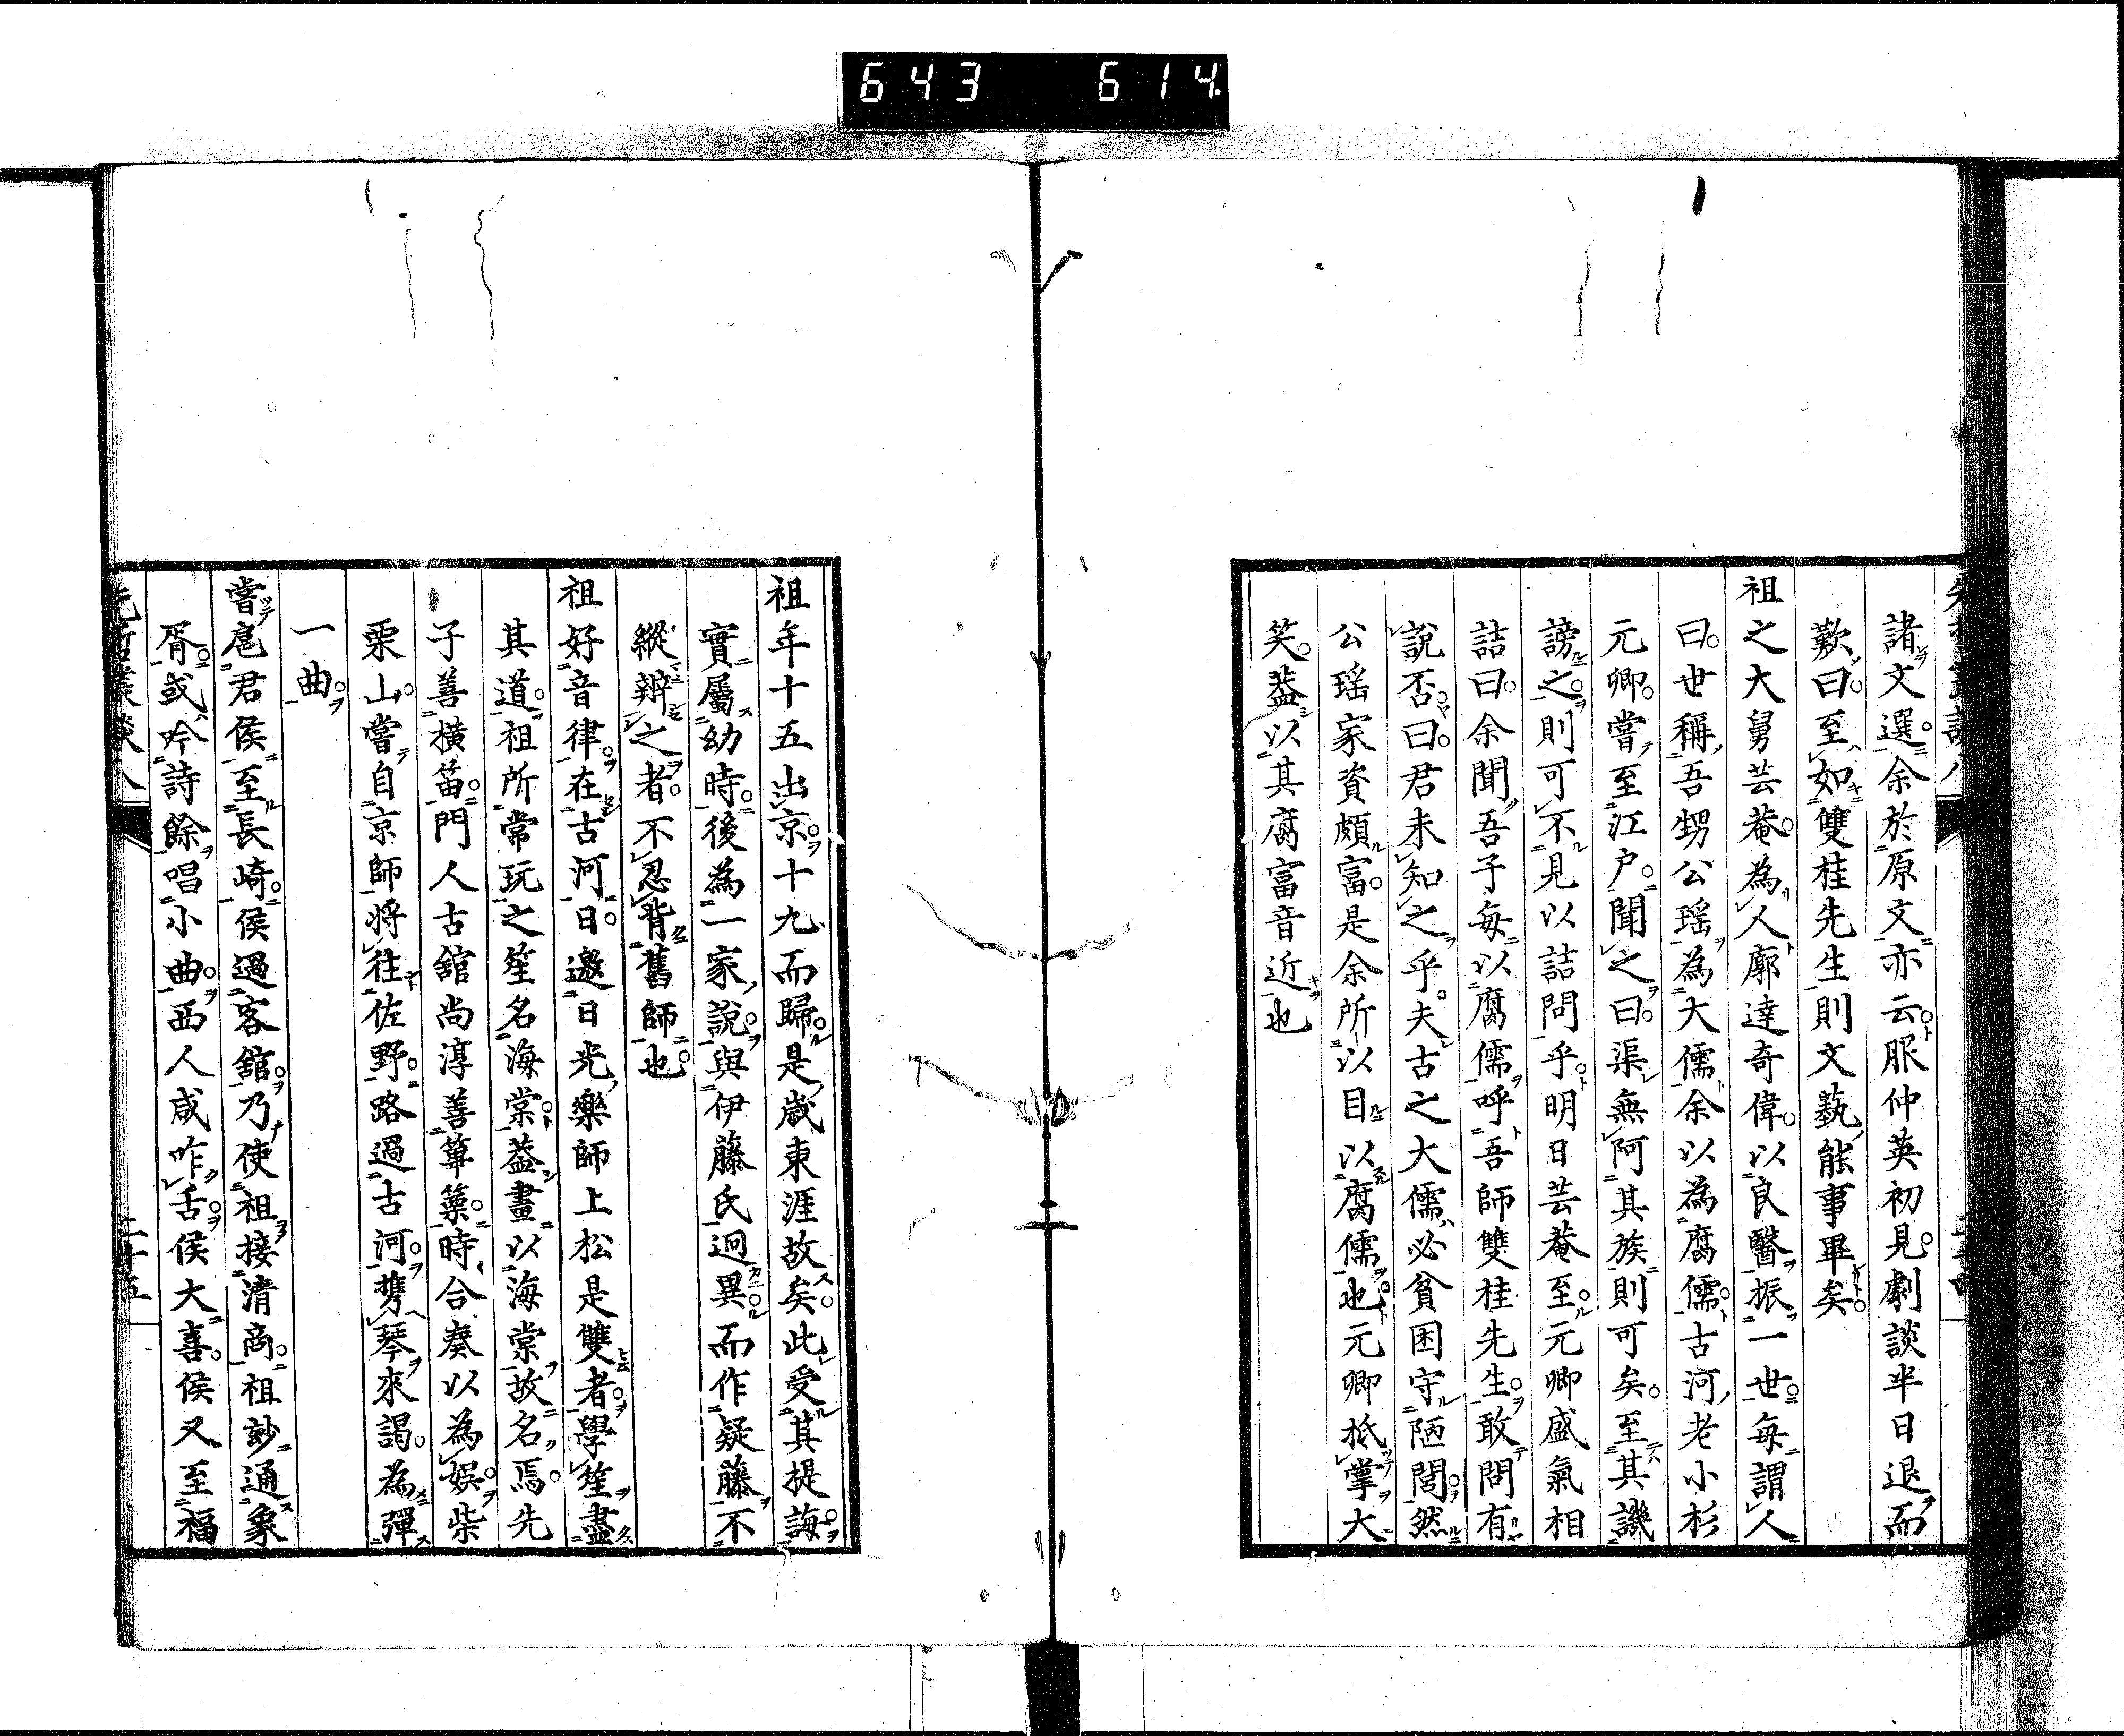 643 614.
諸文選余於原文亦云服仲英初見劇談半日退而
歎曰至如雙桂先生則文藝能事畢矣
祖之大舅芸菴為人廓達奇偉以良醫振一世每謂人
曰世稱吾甥公瑶為大儒余以為腐儒古河老小杉
元卿嘗至江户聞之曰渠無阿其族則可矣至其譏
謗之則可不見以詰問乎明日芸菴至元卿盛氣相
詰曰余聞吾子每以腐儒呼吾師雙桂先生敢問有
說否曰君未知之乎夫古之大儒必貧困守陋誾然
公瑶家資頗富是余所以目以腐儒也元卿抵掌大
笑葢以其腐富音近也
祖年十五出京十九而歸是歳東涯故矣此受其提誨
實屬幼時後為一家說與伊藤氏迥異而作疑藤不
縱辨之者不忍背舊師也
祖好音律在古河日邀日光樂師上松是雙者學笙盡
其道祖所常玩之笙名海棠葢畫以海棠故名焉先
子善横笛門人古舘尚淳善篳篥時合奏以為娯柴
栗山嘗自京師將往佐野路過古河携琴來謁為彈
一曲
嘗扈君侯至長崎侯過客舘乃使祖接清商祖玅通象
胥或吟詩餘唱小曲西人咸咋舌侯大喜侯又至福
先哲叢談八
二十五